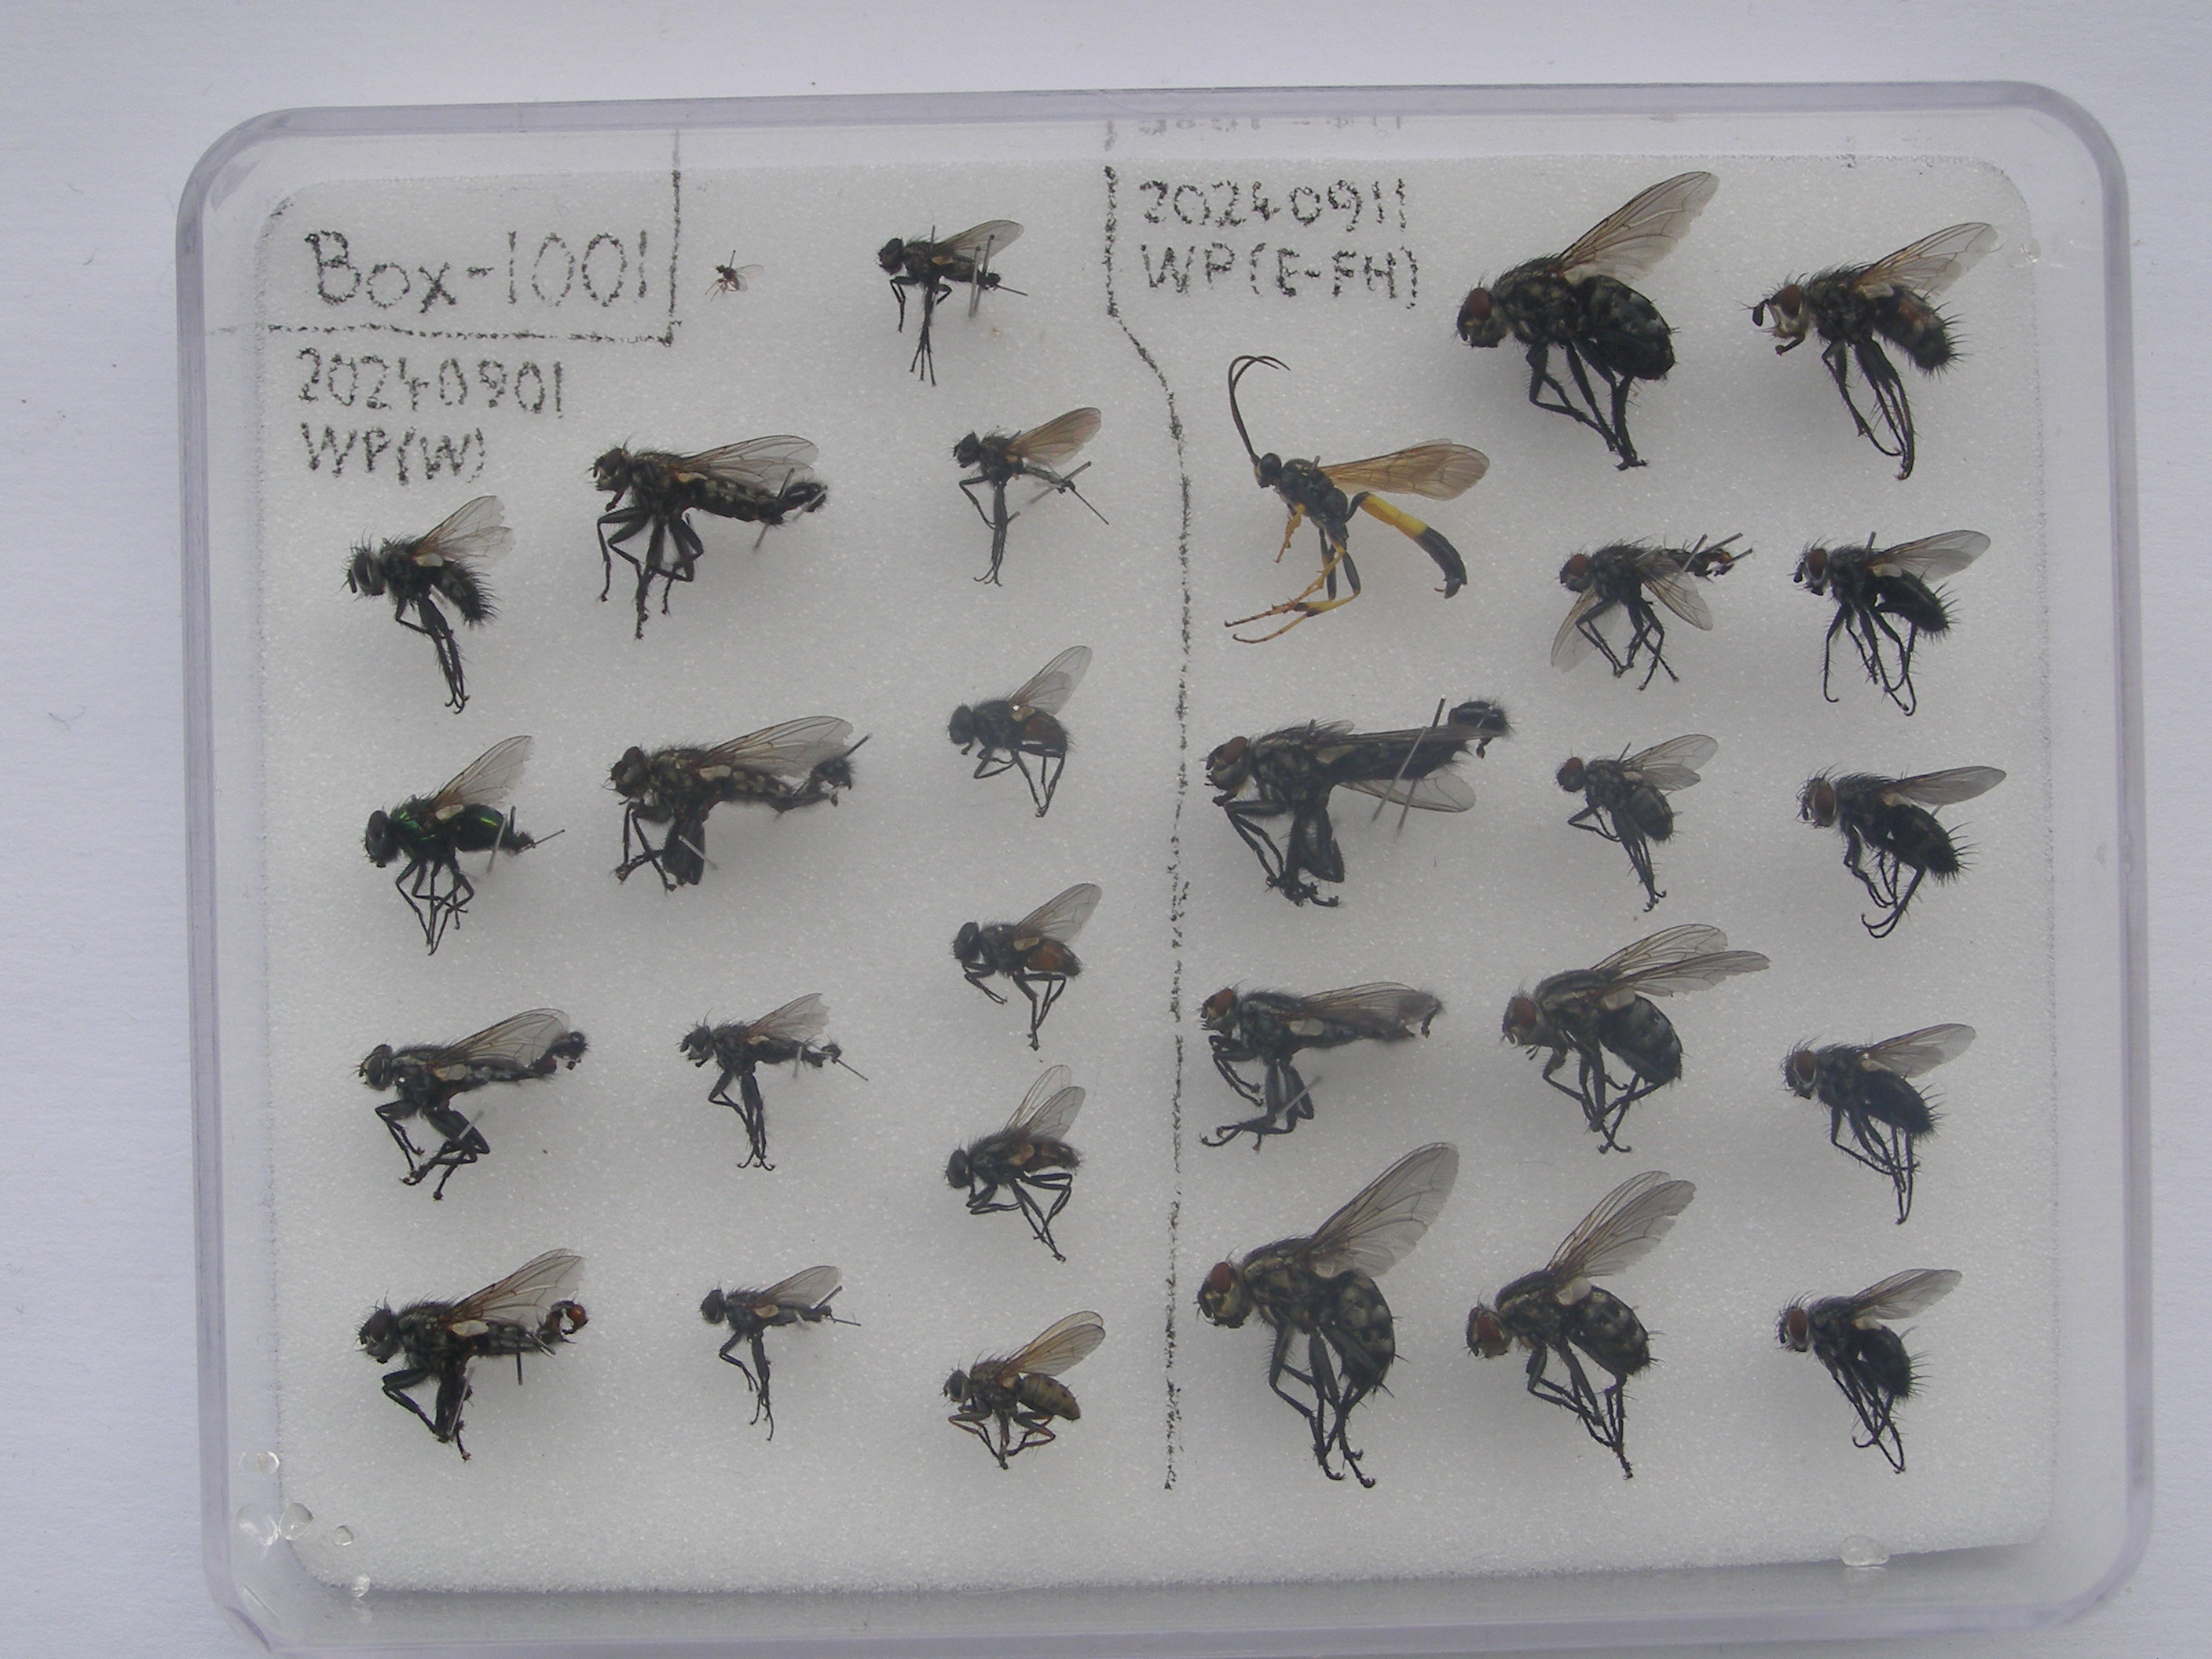 Box-1001
20240901
WP(W)
20240911
WP(E-FH)